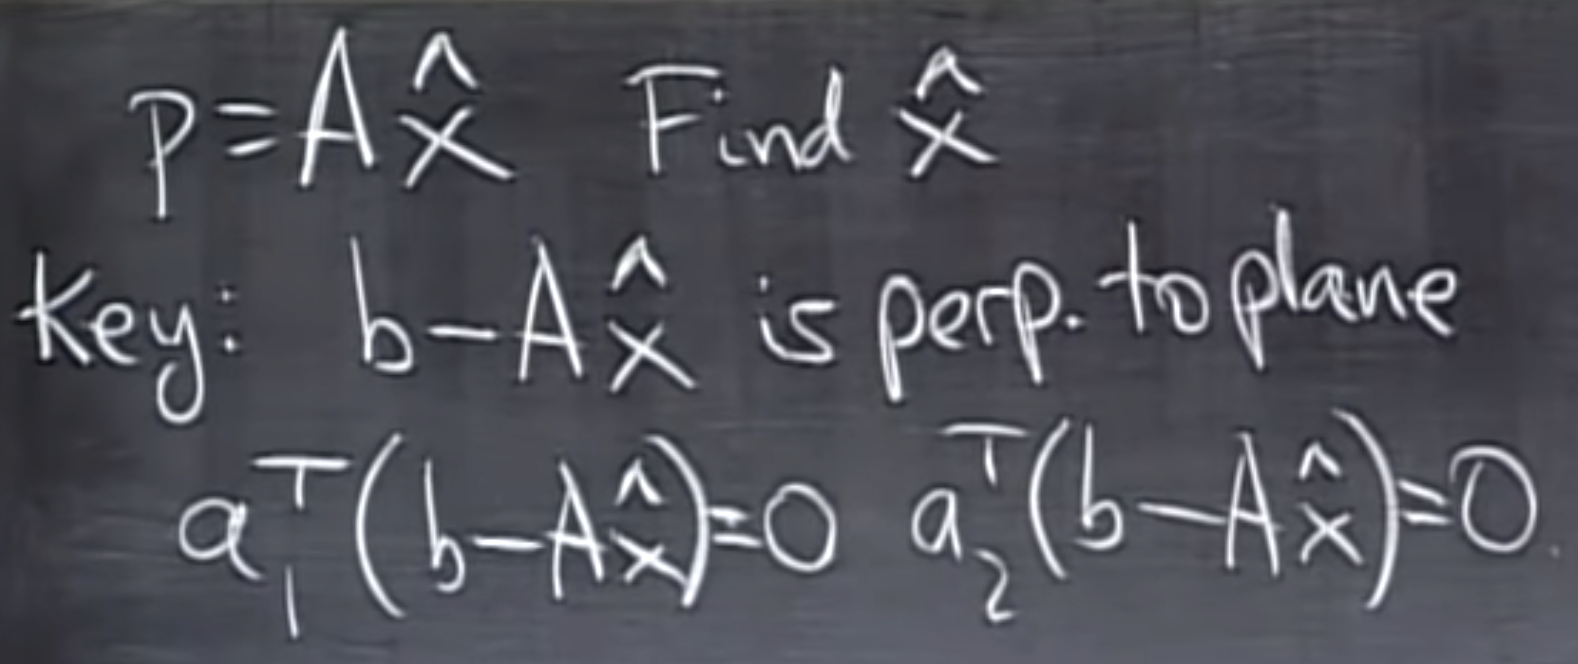 p=Ax̂ Find x̂
Key: b-Ax̂ is perp. to plane
a₁ᵀ(b-Ax̂)=0 a₂ᵀ(b-Ax̂)=0.